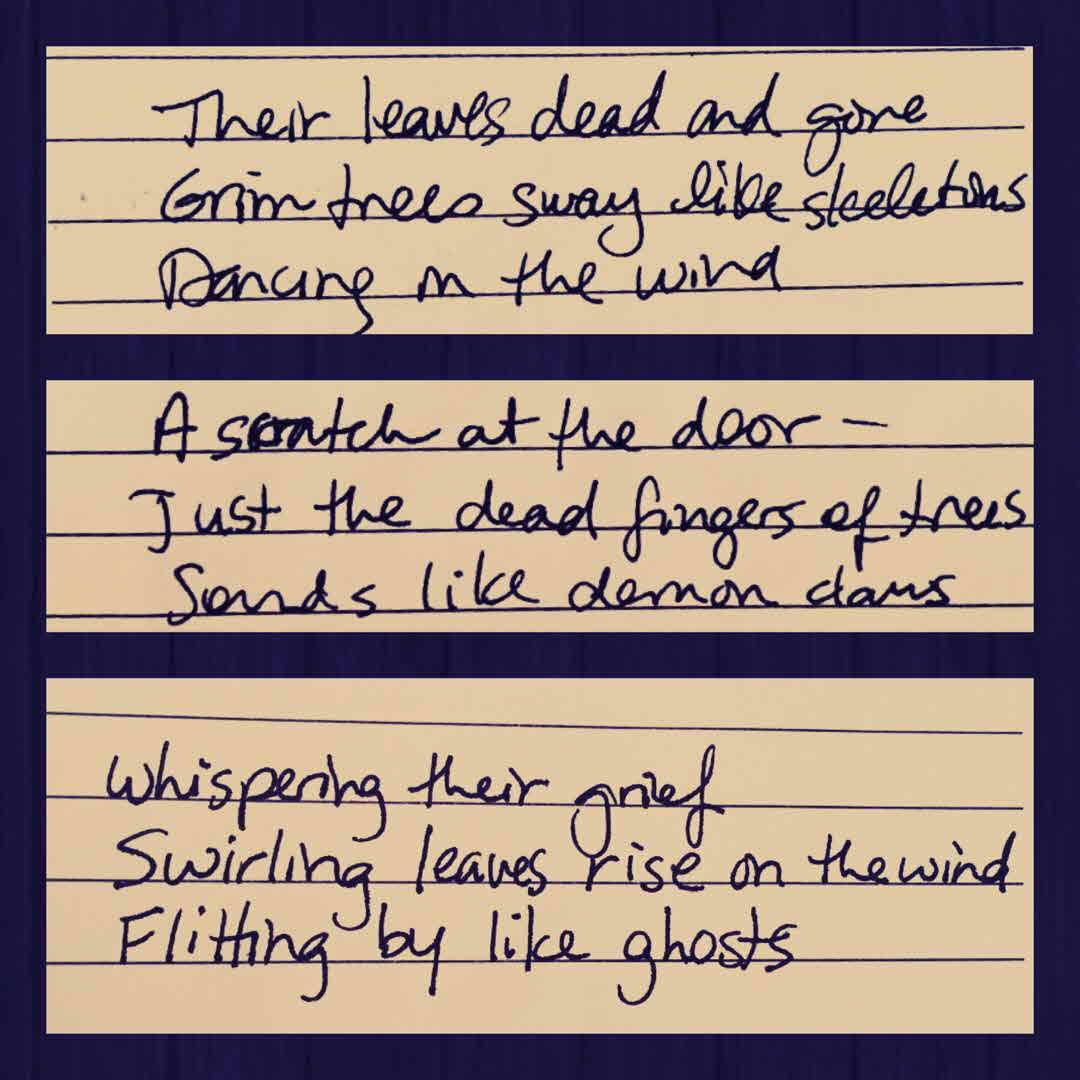 Their leaves dead and gone
Grim trees sway like skeletons
Dancing in the wind
A scratch at the door —
Just the dead fingers of trees
Sounds like demon claws
Whispering their grief
Swirling leaves rise on the wind
Flitting by like ghosts